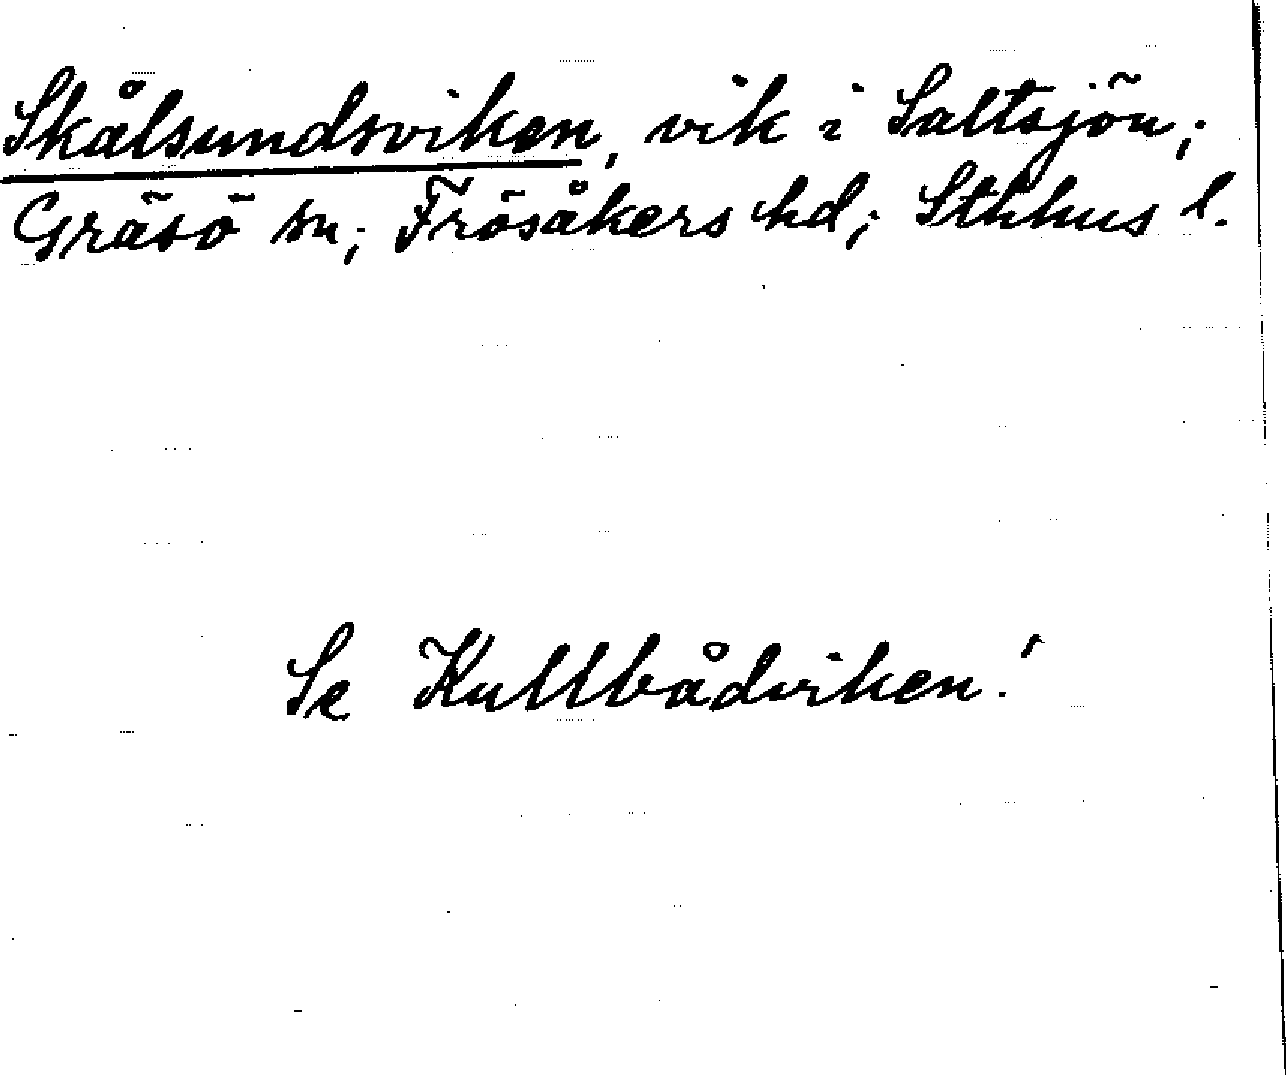 Skålsundsviken, vik i Saltsjön;
Gräsö sn; Frösåkers hd; Sthlms l.
Se Kullbådviken!